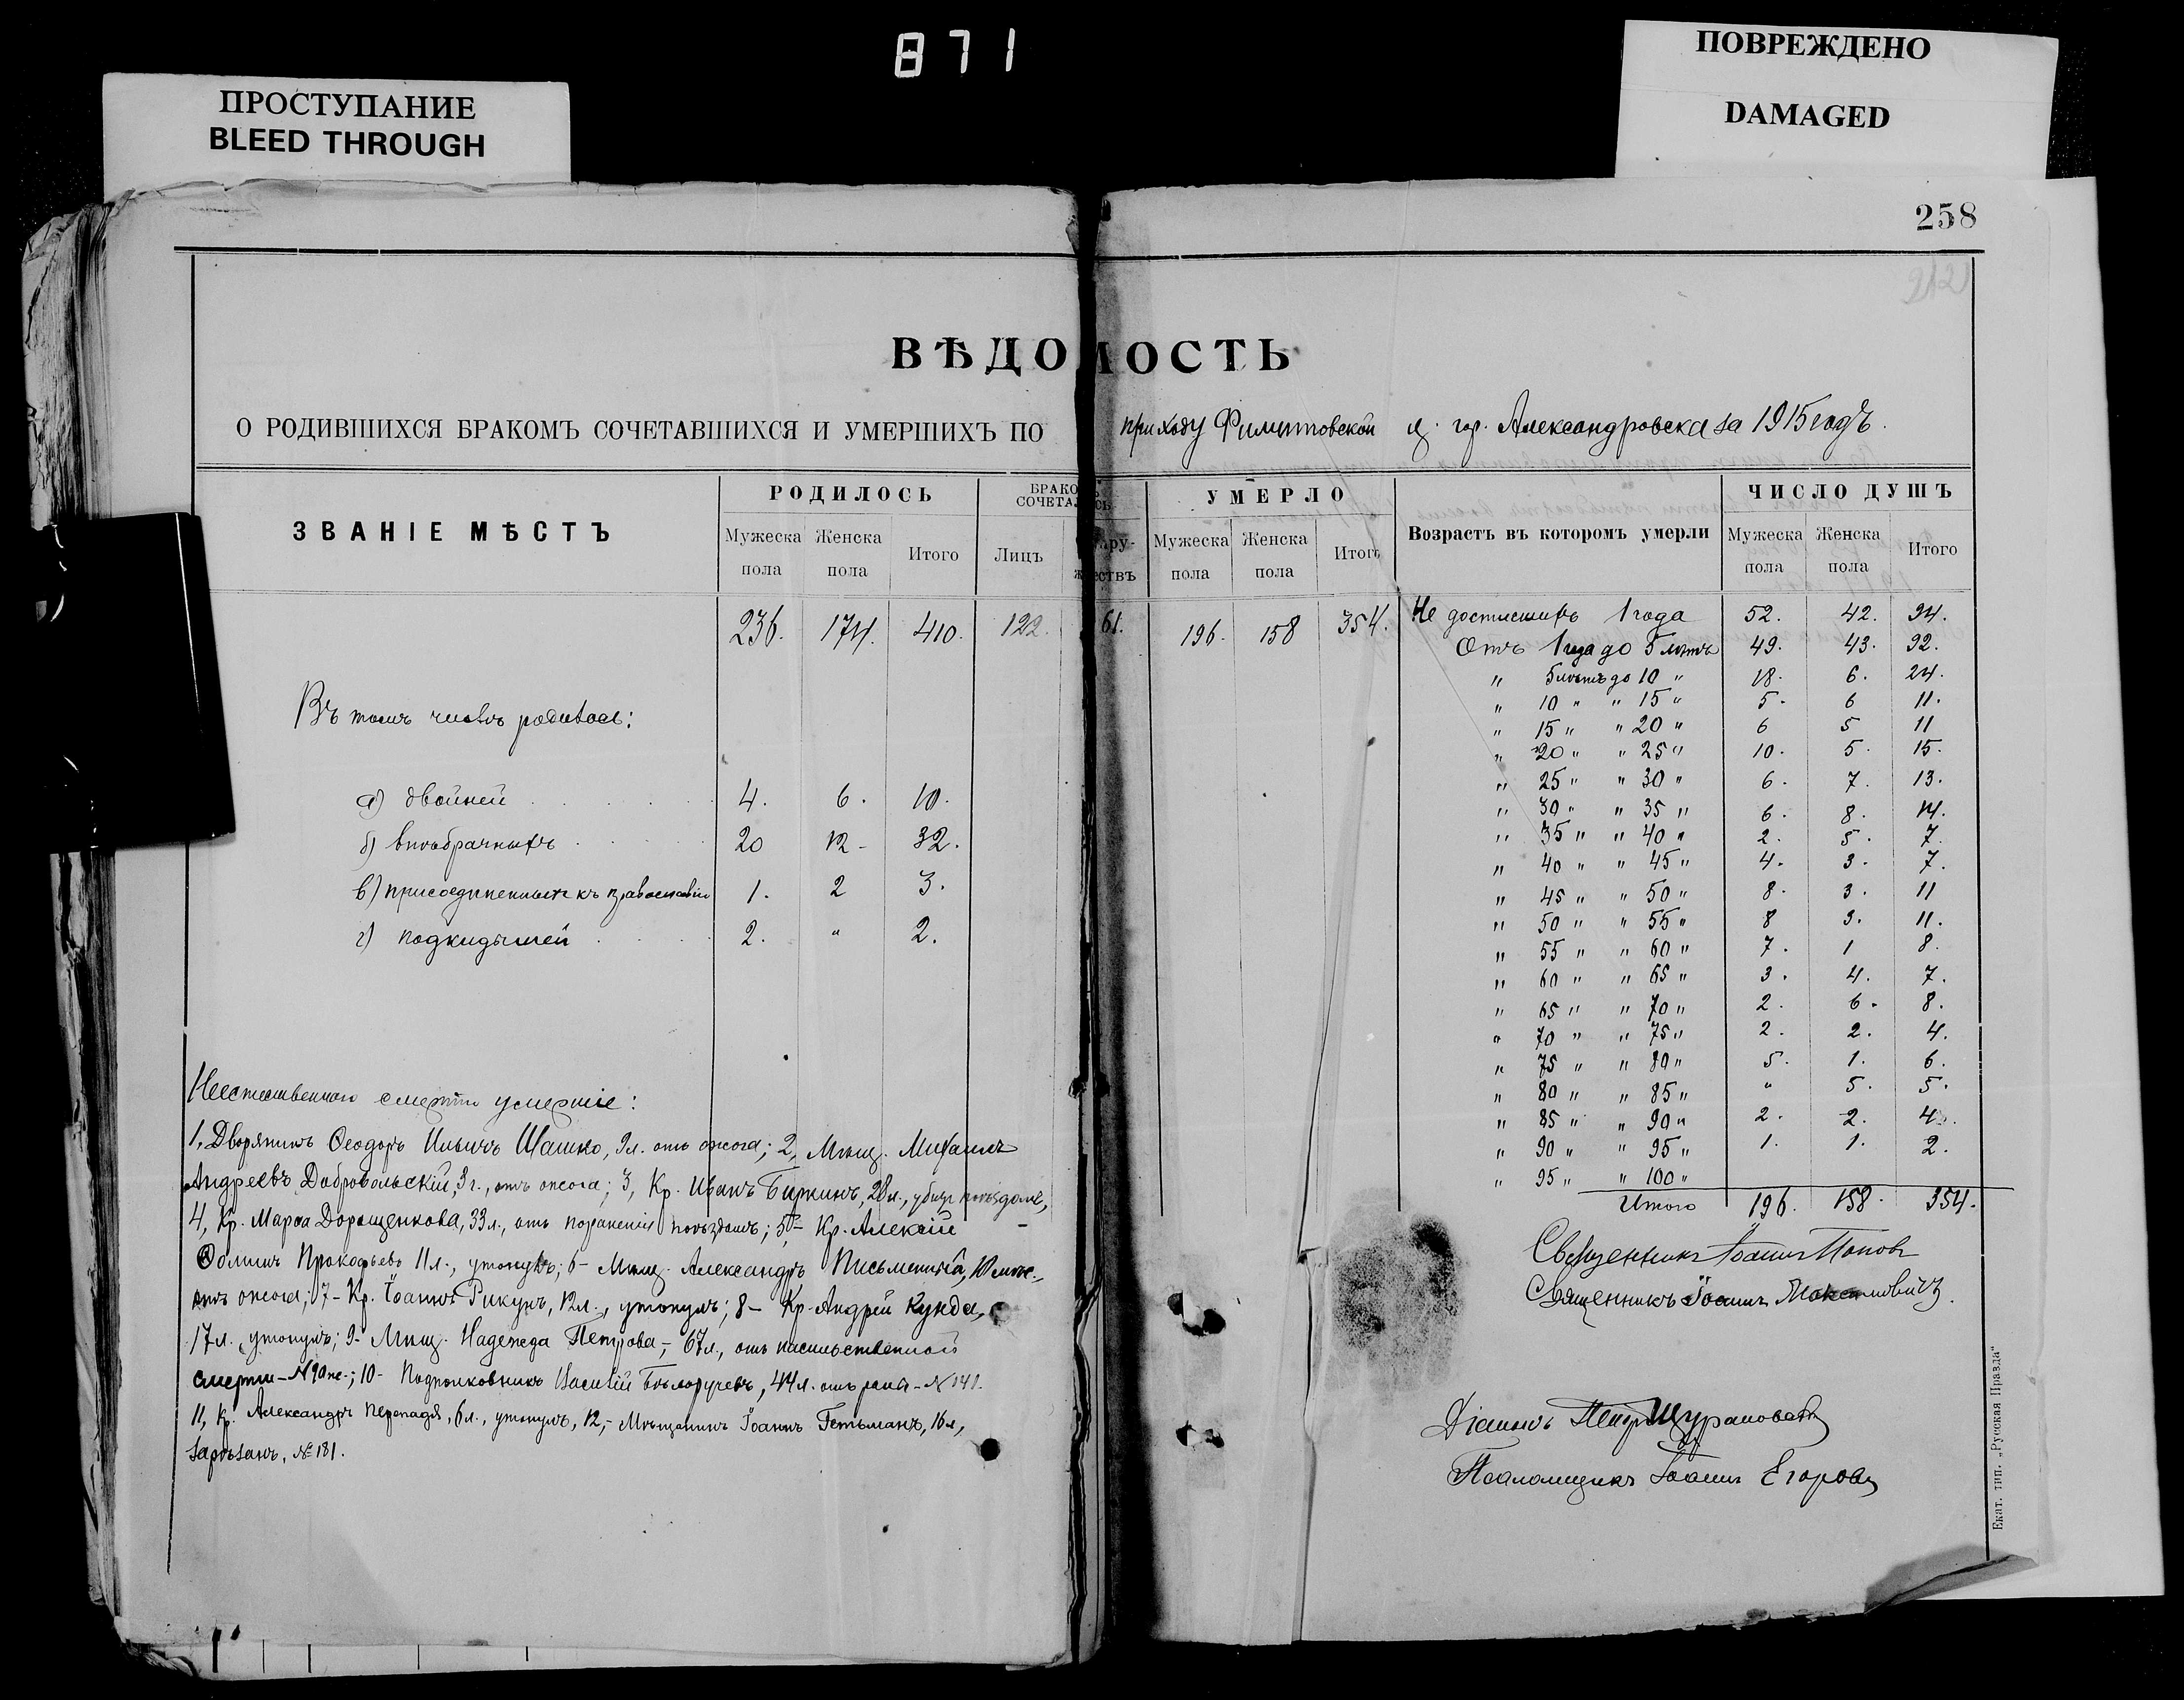 871
ПРОСТУПАНИЕ
BLEED THROUGH
ПОВРЕЖДЕНО
DAMAGED
258
212
ВѢДОМОСТЬ
О РОДИВШИХСЯ БРАКОМЪ СОЧЕТАВШИХСЯ И УМЕРШИХЪ ПО приходу Филипповской ц. гор. Александровска за 1915 годъ.
ЗВАНІЕ МѢСТЪ
РОДИЛОСЬ
Мужеска пола
Женска пола
Итого
БРАКОМЪ СОЧЕТАЛОСЬ
Лицъ
Супружествъ
УМЕРЛО
Мужеска пола
Женска пола
Итого
Возрастъ въ которомъ умерли
ЧИСЛО ДУШЪ
Мужеска пола
Женска пола
Итого
236. 174. 410. 122. 61. 196. 158 354.
Въ томъ числѣ родилось:
а) двойней 4. 6. 10.
б) внѣбрачныхъ 20 12 - 32.
в) присоединенныхъ къ православію 1. 2 3.
г) подкидышей 2. " 2.
Не достигшихъ 1 года 52. 42. 94.
Отъ 1 года до 5 лѣтъ 49. 43. 92.
" 5 лѣтъ до 10 " 18. 6. 24.
" 10 " " 15 " 5. 6 11.
" 15 " " 20 " 6 5 11
" 20 " " 25 " 10. 5. 15.
" 25 " " 30 " 6. 7. 13.
" 30 " " 35 " 6. 8. 14.
" 35 " " 40 " 2. 5. 7.
" 40 " " 45 " 4. 3. 7.
" 45 " " 50 " 8. 3. 11
" 50 " " 55 " 8 3. 11.
" 55 " " 60 " 7. 1 8.
" 60 " " 65 " 3. 4. 7.
" 65 " " 70 " 2. 6. 8.
" 70 " " 75 " 2. 2. 4.
" 75 " " 80 " 5. 1. 6.
" 80 " " 85 " " 5. 5.
" 85 " " 90 " 2. 2. 4.
" 90 " " 95 " 1. 1. 2.
" 95 " " 100 "
Итого 196. 158. 354.
Неестественною смертію умершіе:
1, Дворянинъ Ѳеодоръ Ильичъ Шашко, 9 л. отъ ожога; 2, Мѣщ. Михаилъ
Андреевъ Добровольскій, 3 г., отъ ожога; 3, Кр. Иванъ Биркинъ, 28 л., убитъ поѣздомъ,
4, Кр. Марѳа Дорощенкова, 33 л., отъ пораненія поѣздомъ; 5 - Кр. Алексій
Ѳоминъ Прокофьевъ 11 л., утонулъ; 6 - Мѣщ. Александръ Письменный, 10 мѣс.,
отъ ожога; 7 - Кр. Іоаннъ Рикунъ, 12 л., утонулъ; 8 - Кр. Андрей Кунда,
17 л. утонулъ; 9 - Мѣщ. Надежда Петрова - 67 л., отъ насильственной
смерти - № 90 ж.; 10 - Подполковникъ Василій Бѣлоручевъ, 44 л. отъ ранъ - № 141.
11, Кр. Александръ Перепадя, 6 л., утонулъ, 12, - Мѣщанинъ Іоаннъ Гетьманъ, 16 л,
зарѣзанъ, № 181.
Священникъ Іоаннъ Поповъ
Священникъ Іоаннъ Максимовичъ.
Діаконъ Петръ
Псаломщикъ Іоаннъ Егоровъ
Екат. тип. „Русская Правда“